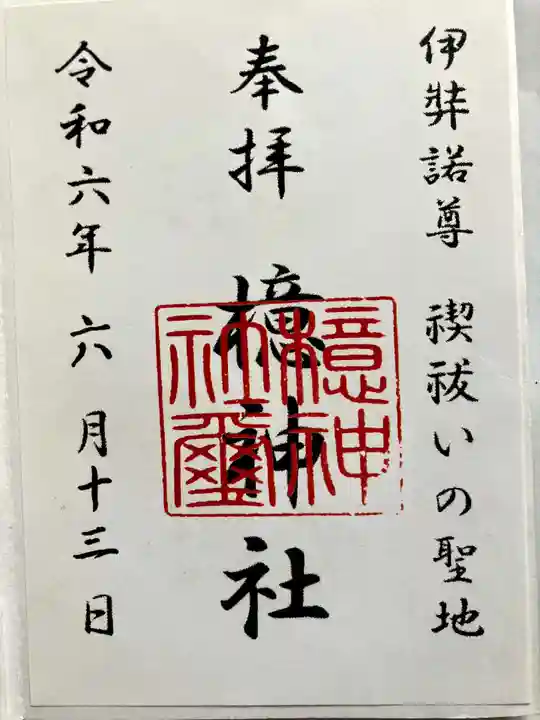 伊弉諾尊 禊祓いの聖地
奉拝 檍神社
令和六年 六月十三日
檍神社璽